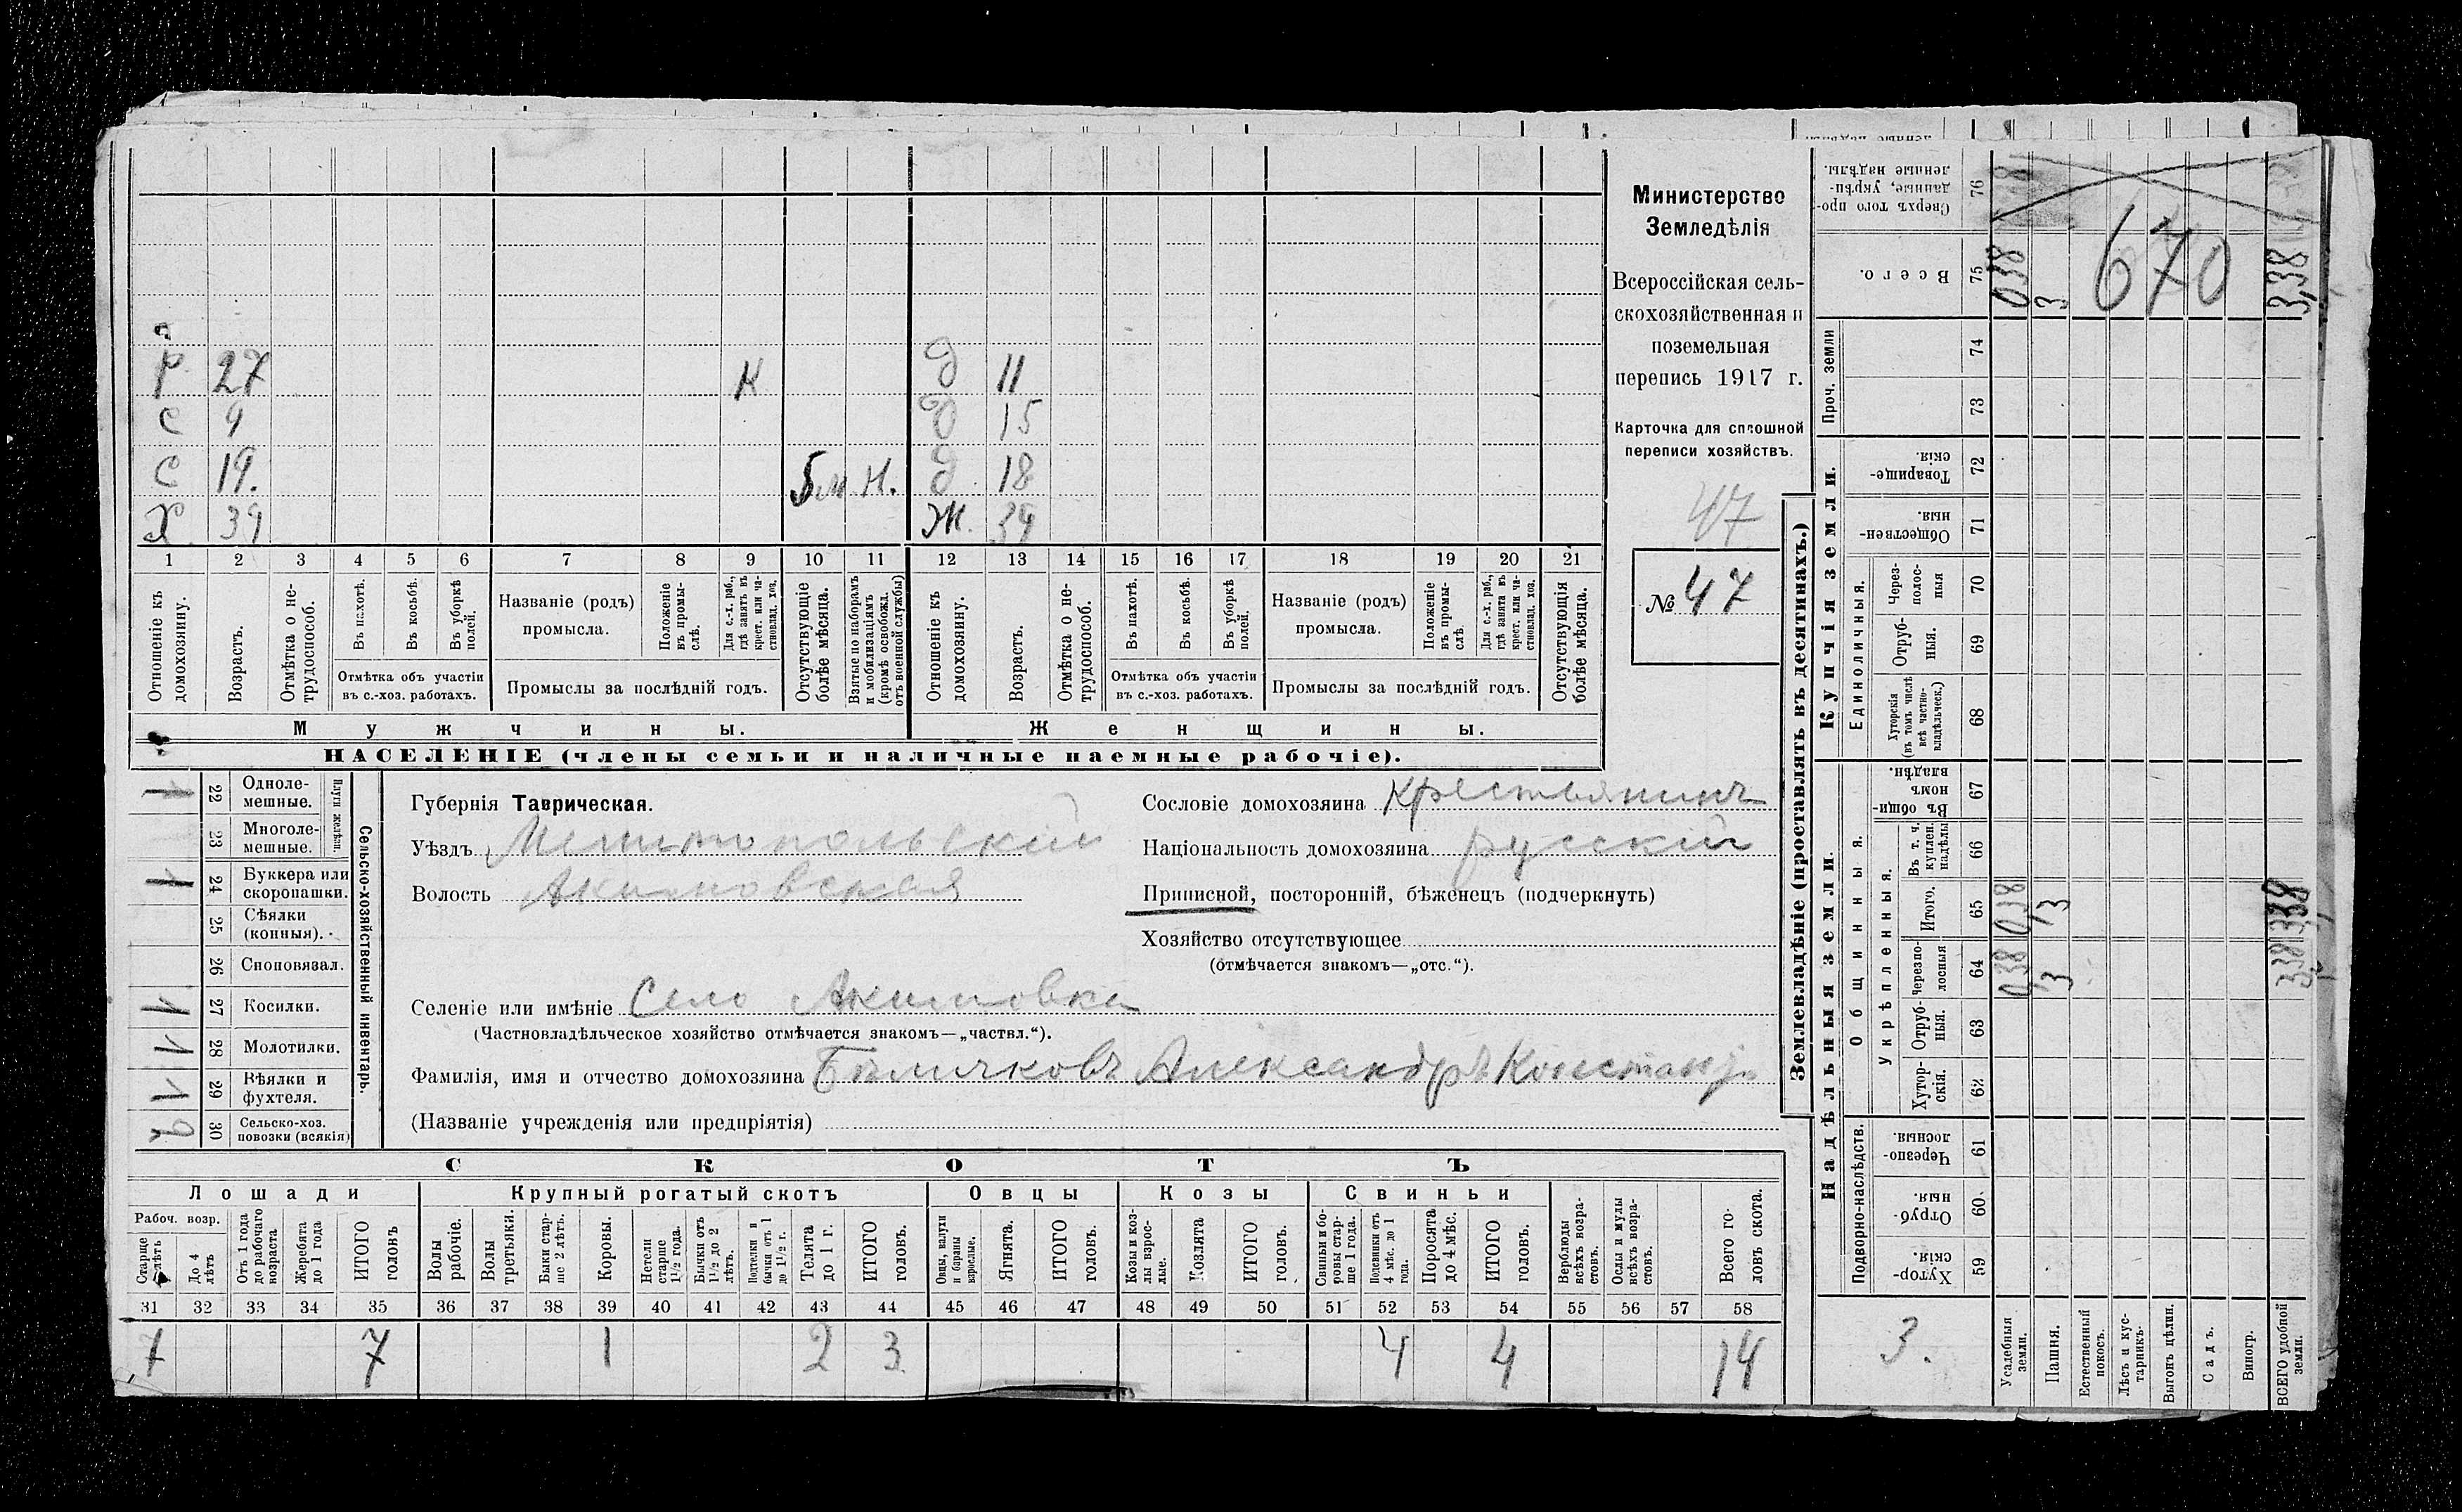 Министерство
Земледѣлія
Всероссійская сель-
скохозяйственная и
поземельная
перепись 1917 г.
Карточка для сплошной
переписи хозяйствъ.
47
№ 47
Р 27 К Д 11
С 9 Д 15
С 19. 5 м. Н. Д 18
Х 39 Ж. 39
1 2 3 4 5 6 7 8 9 10 11 12 13 14 15 16 17 18 19 20 21
Отношеніе къ домохозяину.
Возрастъ.
Отмѣтка о не-трудоспособ.
Въ пахотѣ.
Въ косьбѣ.
Въ уборкѣ полей.
Отмѣтка объ участіи въ с.-хоз. работахъ.
Названіе (родъ) промысла.
Положеніе въ промы-слѣ.
Для с.-х. раб., гдѣ занятъ въ крест. или ча-стновлад. хоз.
Промыслы за послѣдній годъ.
Отсутствующіе болѣе мѣсяца.
Взятые по наборамъ и мобилизаціямъ (кромѣ освобожд. отъ военной службы)
Отношеніе къ домохозяину.
Возрастъ.
Отмѣтка о не-трудоспособ.
Въ пахотѣ.
Въ косьбѣ.
Въ уборкѣ полей.
Отмѣтка объ участіи въ с.-хоз. работахъ.
Названіе (родъ) промысла.
Положеніе въ промы-слѣ.
Для с.-х. раб., гдѣ занята въ крест. или ча-стновлад. хоз.
Промыслы за послѣдній годъ.
Отсутствующія болѣе мѣсяца.
Мужчины. Женщины.
НАСЕЛЕНІЕ (члены семьи и наличные наемные рабочіе).
Сельско-хозяйственный инвентарь.
Плуги желѣзн.
1 22 Одноле-мешные.
23 Многоле-мешные.
1 24 Буккера или скоропашки.
25 Сѣялки (конныя).
26 Сноповязал.
1 27 Косилки.
1 28 Молотилки.
1 29 Вѣялки и фухтеля.
2 30 Сельско-хоз. повозки (всякія)
Губернія Таврическая.
Уѣздъ Мелитопольскій
Волость Акимовская
Сословіе домохозяина Крестьянинъ
Національность домохозяина русскій
Приписной, посторонній, бѣженецъ (подчеркнуть)
Хозяйство отсутствующее
(отмѣчается знакомъ—„отс.“).
Селеніе или имѣніе Село Акимовка
(Частновладѣльческое хозяйство отмѣчается знакомъ—„частвл.“).
Фамилія, имя и отчество домохозяина Александръ Констант
(Названіе учрежденія или предпріятія)
СКОТЪ
Лошади Крупный рогатый скотъ Овцы Козы Свиньи
Рабоч. возр.
Старше 4 лѣтъ
До 4 лѣтъ
Отъ 1 года до рабочаго возраста
Жеребята до 1 года
ИТОГО головъ
Волы рабочіе.
Волы третьяки.
Быки стар-ше 2 лѣтъ.
Коровы.
Нетели старше 1½ года.
Бычки отъ 1½ до 2 лѣтъ.
Подтелки и бычки отъ 1 до 1½ г.
Телята до 1 г.
ИТОГО головъ.
Овцы, валухи и бараны взрослые.
Ягнята.
ИТОГО головъ.
Козы и коз-лы взрос-лые.
Козлята
ИТОГО головъ.
Свиньи и бо-ровы стар-ше 1 года.
Подсвинки отъ 4 мѣс. до 1 года.
Поросята до 4 мѣс.
ИТОГО головъ.
Верблюды всѣхъ возра-стовъ.
Ослы и мулы всѣхъ возра-стовъ.
Всего го-ловъ скота.
31 32 33 34 35 36 37 38 39 40 41 42 43 44 45 46 47 48 49 50 51 52 53 54 55 56 57 58
7 7 1 2 3 4 4 14
Землевладѣніе (проставлять въ десятинахъ.)
Купчія земли.
Надѣльныя земли.
Сверхъ того про-данные, укрѣп-ленные надѣлы. 76
Всего. 75 038 3 3,38
670
Проч. земли 74
73
Товарище-скія. 72
Обществен-ныя. 71
Единоличныя.
Через-полос-ныя 70
Отруб-ныя. 69
Хуторскія (въ томъ числѣ всѣ частно-владѣльческ.) 68
Общинныя.
Въ общи-номъ владѣн. 67
Укрѣпленныя.
Въ т. ч. куплен. надѣлы 66
Итого. 65 038 3 3,38
Черезпо-лосныя 64 038 3 3,38
Отруб-ныя. 63
Хутор-скія. 62
Подворно-наслѣдств.
Черезпо-лосныя. 61
Отруб-ныя. 60
Хутор-скія. 59
3.
Усадебныя земли.
Пашня.
Естественный покосъ.
Лѣсъ и кус-тарникъ.
Выгонъ цѣлин.
Садъ.
Виногр.
ВСЕГО удобной земли.